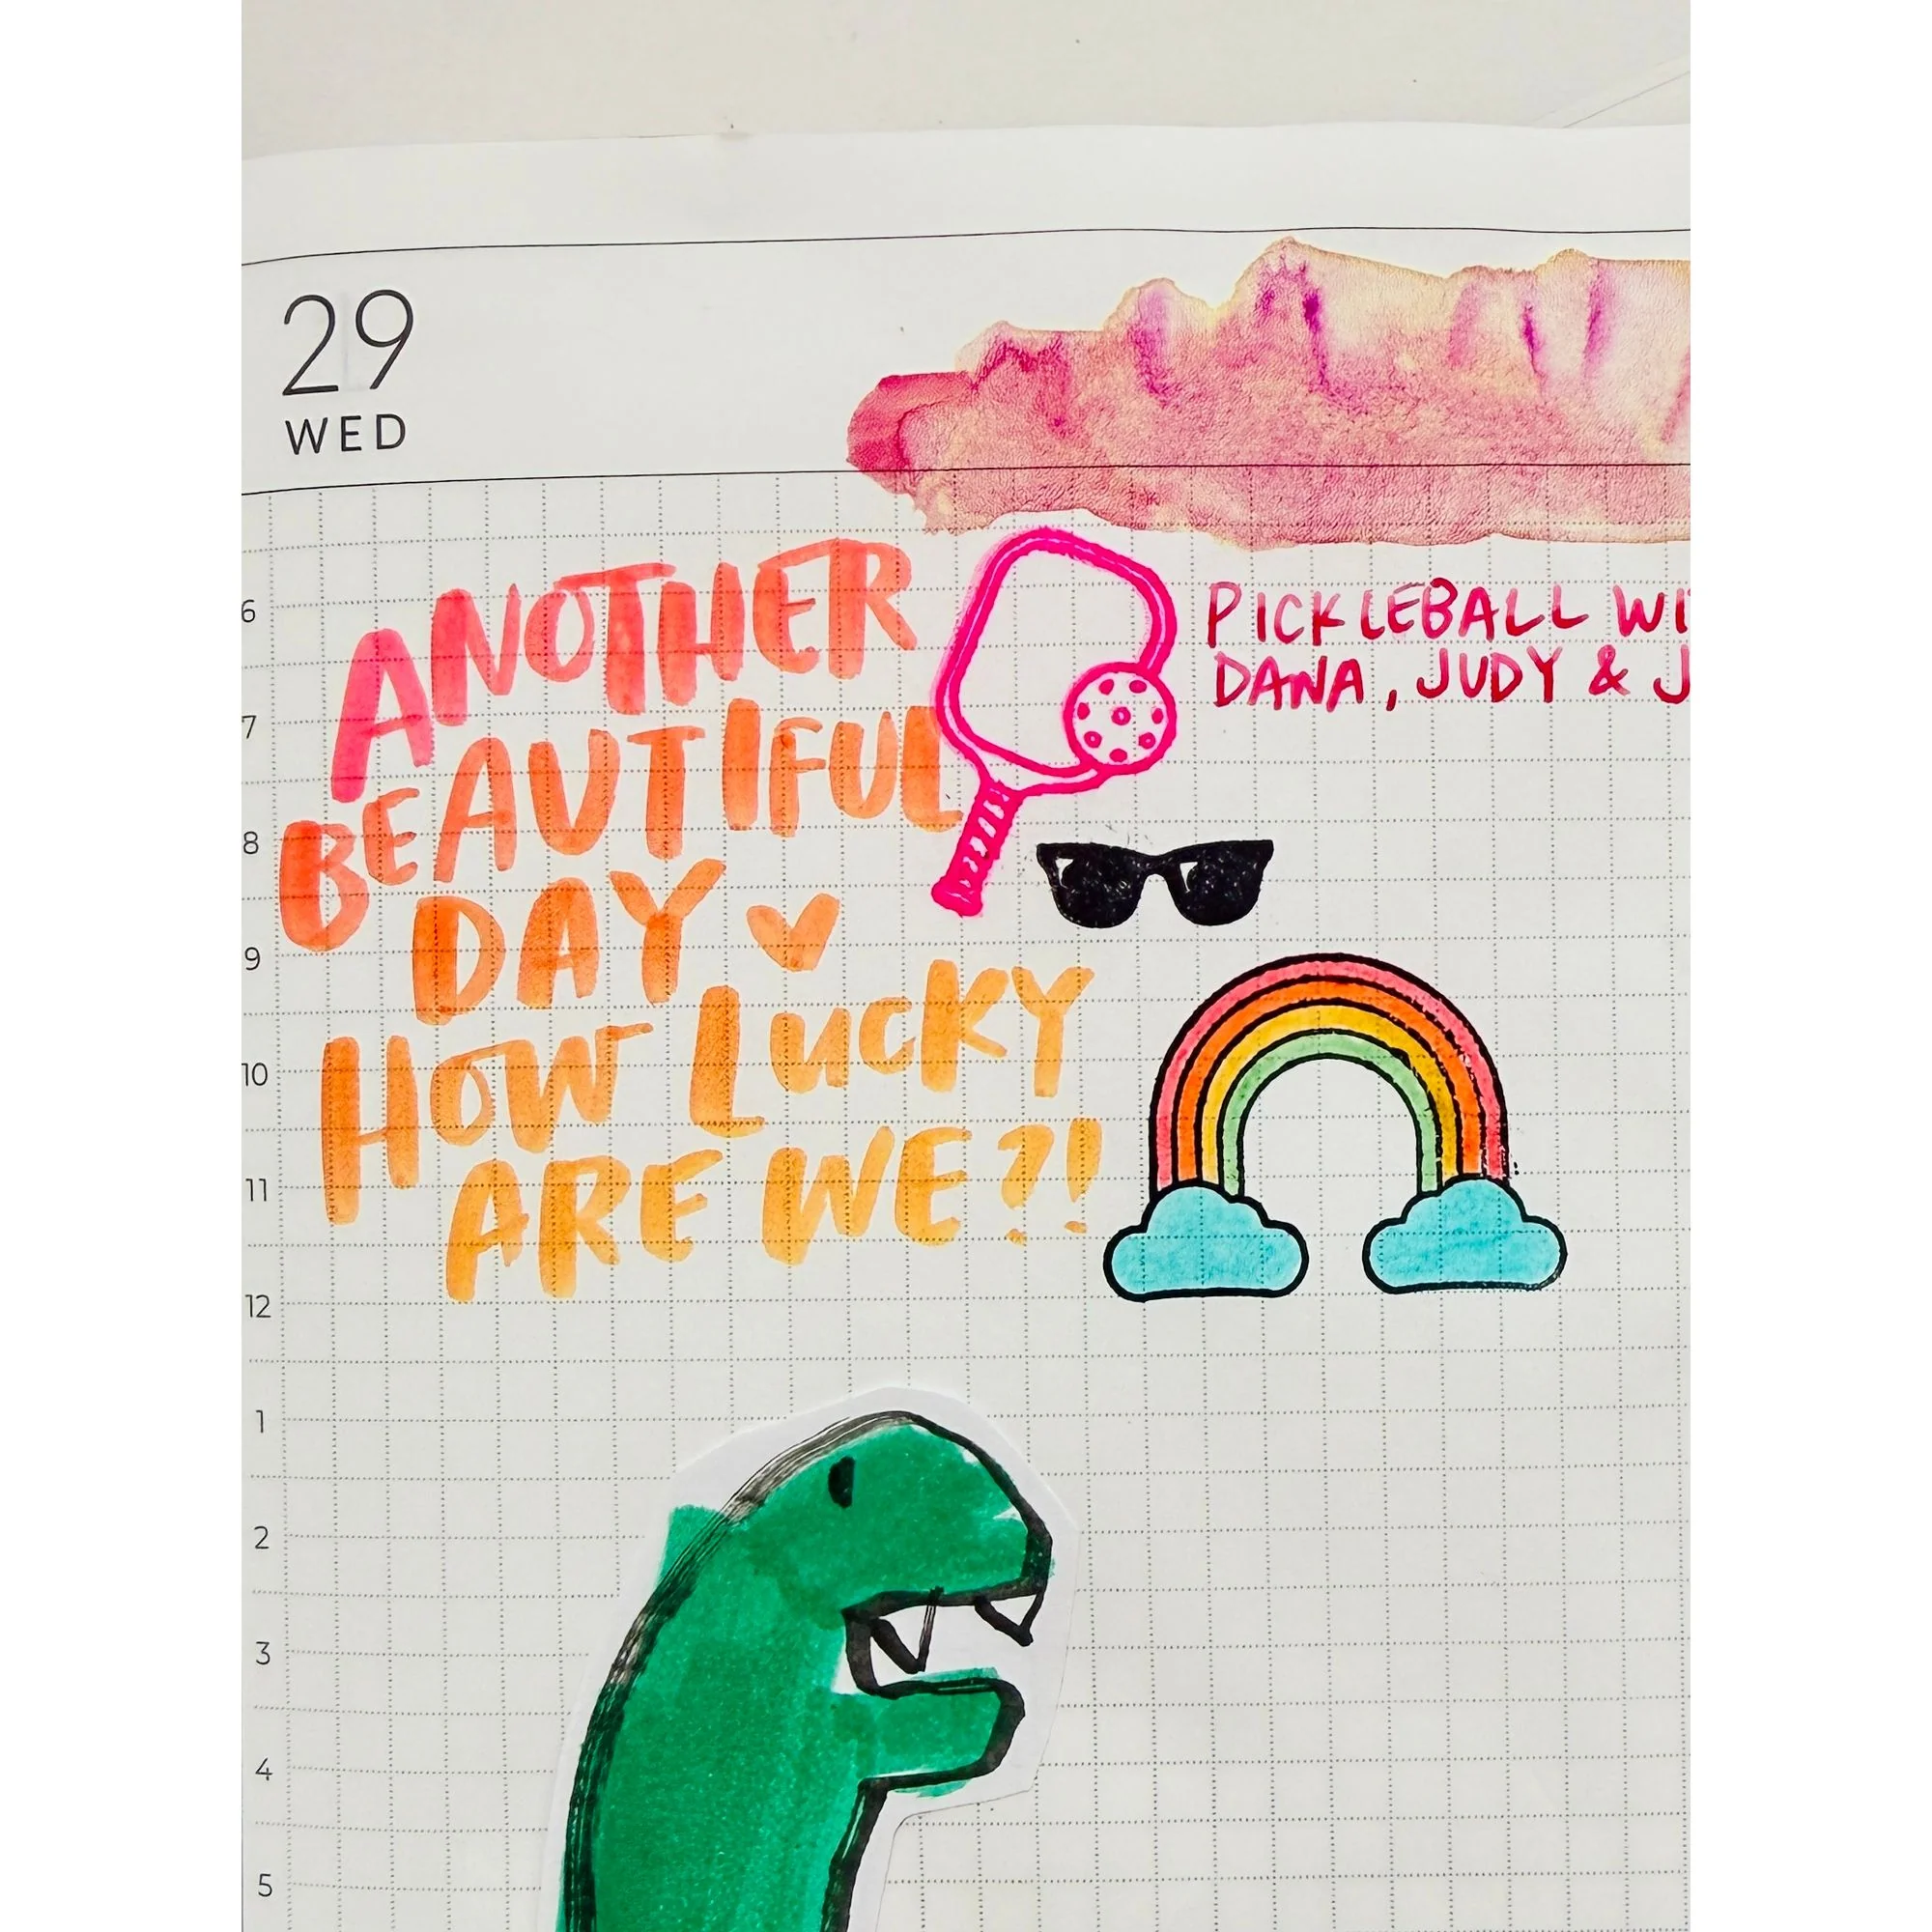 29
WED
ANOTHER
BEAUTIFUL
DAY
HOW LUCKY
ARE WE?!
PICKLEBALL
DANA, JUDY &
6
7
8
9
10
11
12
1
2
3
4
5